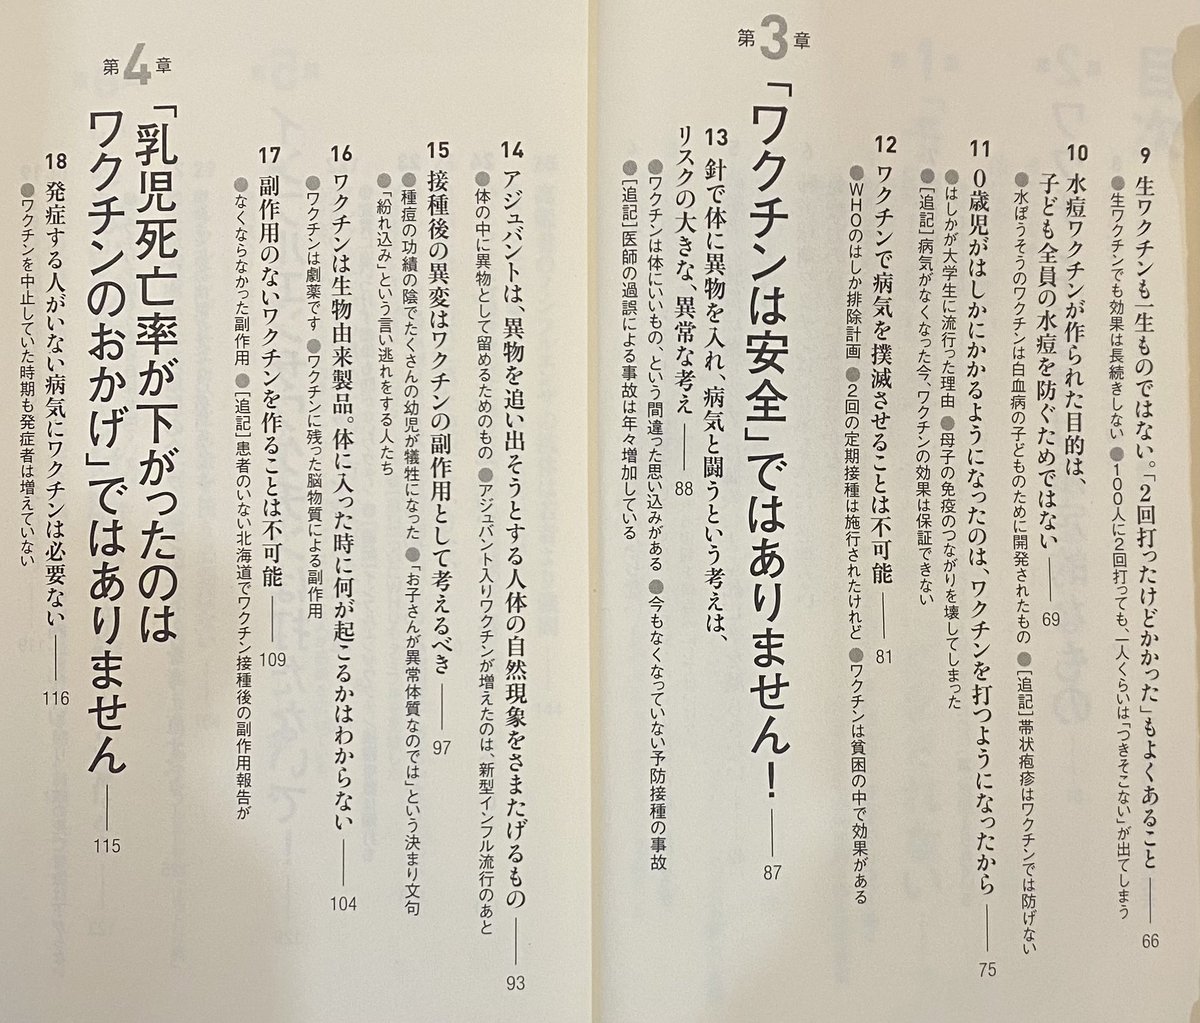 9 生ワクチンも一生ものではない。「2回打ったけどかかった」もよくあること 66
●生ワクチンでも効果は長続きしない ●100人に2回打っても、一人くらいは「つきそこない」が出てしまう
10 水痘ワクチンが作られた目的は、
子ども全員の水痘を防ぐためではない 69
●水ぼうそうのワクチンは白血病の子どものために開発されたもの ●[追記]帯状疱疹はワクチンでは防げない
11 0歳児がはしかにかかるようになったのは、ワクチンを打つようになったから 75
●はしかが大学生に流行った理由 ●母子の免疫のつながりを壊してしまった
●[追記]病気がなくなった今、ワクチンの効果は保証できない
12 ワクチンで病気を撲滅させることは不可能 81
●WHOのはしか排除計画 ●2回の定期接種は施行されたけれど ●ワクチンは貧困の中で効果がある
第3章 「ワクチンは安全」ではありません! 87
13 針で体に異物を入れ、病気と闘うという考えは、
リスクの大きな、異常な考え 88
●ワクチンは体にいいもの、という間違った思い込みがある ●今もなくなっていない予防接種の事故
●[追記]医師の過誤による事故は年々増加している
14 アジュバントは、異物を追い出そうとする人体の自然現象をさまたげるもの 93
●体の中に異物として留めるためのもの ●アジュバント入りワクチンが増えたのは、新型インフル流行のあと
15 接種後の異変はワクチンの副作用として考えるべき 97
●種痘の功績の陰でたくさんの幼児が犠牲になった ●「お子さんが異常体質なのでは」という決まり文句
●「紛れ込み」という言い逃れをする人たち
16 ワクチンは生物由来製品。体に入った時に何が起こるかはわからない 104
●ワクチンは劇薬です ●ワクチンに残った脳物質による副作用
17 副作用のないワクチンを作ることは不可能 109
●なくならなかった副作用 ●[追記]患者のいない北海道でワクチン接種後の副作用報告が
第4章 「乳児死亡率が下がったのは
ワクチンのおかげ」ではありません 115
18 発症する人がいない病気にワクチンは必要ない 116
●ワクチンを中止していた時期も発症者は増えていない